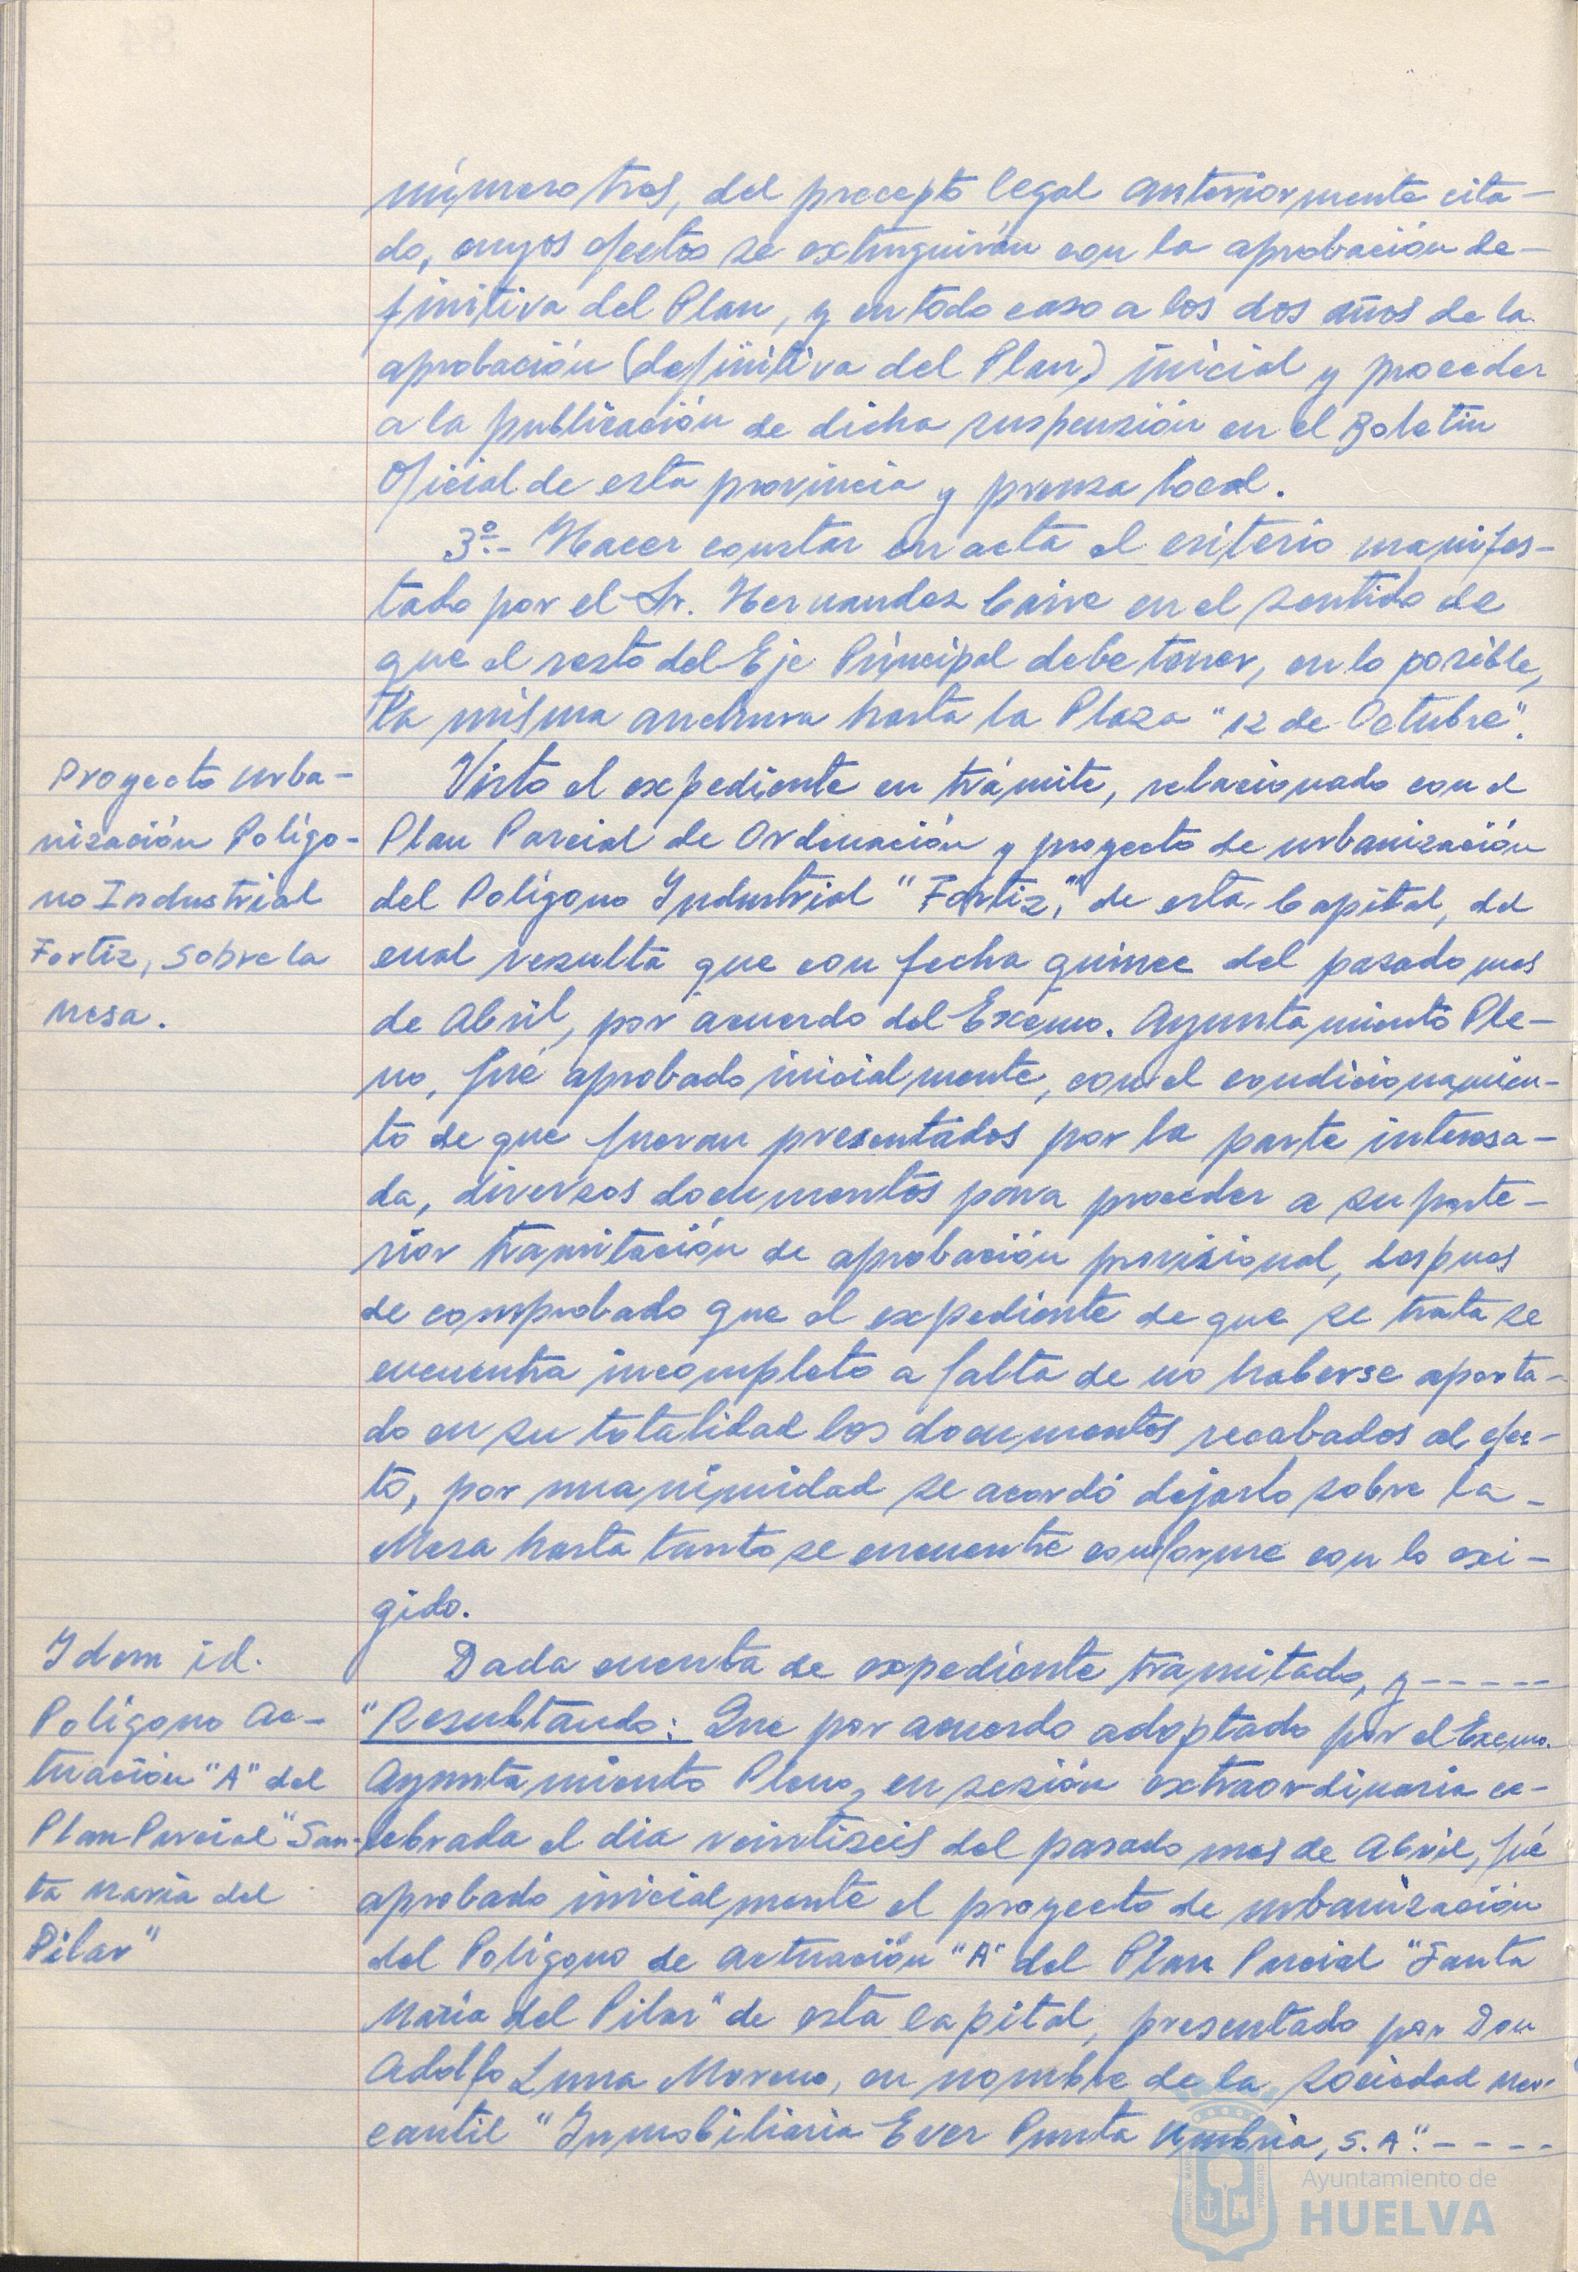 número tres, del precepto legal anteriormente cita-
do, cuyos efectos se extinguirán con la aprobación de-
finitiva del Plan, y en todo caso a los dos años de la
aprobación (definitiva del Plan) inicial y proceder
a la publicación de dicha suspensión en el Boletin
Oficial de esta provincia y prensa local.
3º.- Hacer constar en acta el criterio manifes-
tado por el Sr. Hernandez Caire en el sentido de
que el resto del Eje Principal debe tener, en lo posible,
la misma anchura hasta la Plaza "12 de Octubre".
Proyecto Urba-
nización Polígo-
no Industrial
Fortiz, sobre la
Mesa.
Visto el expediente en trámite, relacionado con el
Plan Parcial de Ordenación y proyecto de urbanización
del Polígono Industrial "Fortiz", de esta Capital, del
cual resulta que con fecha quince del pasado mes
de Abril, por acuerdo del Excmo. Ayuntamiento Ple-
no, fué aprobado inicialmente, con el condicionamien-
to de que fueran presentados por la parte interesa-
da, diversos documentos para proceder a su poste-
rior tramitación de aprobación provisional, despues
de comprobado que el expediente de que se trata se
encuentra incompleto a falta de no haberse aporta-
do en su totalidad los documentos recabados al efec-
to, por unanimidad se acordó dejarlo sobre la -
Mesa hasta tanto se encuentre conforme con lo exi-
gido.
Idem id.
Polígono Ac-
tuación "A" del
Plan Parcial "San-
ta María del
Pilar"
Dada cuenta de expediente tramitado, y -----
"Resultando: Que por acuerdo adoptado por el Excmo.
Ayuntamiento Pleno, en sesión extraordinaria ce-
lebrada el dia veintiseis del pasado mes de Abril, fué
aprobado inicialmente el proyecto de urbanización
del Polígono de actuación "A" del Plan Parcial "Santa
María del Pilar" de esta capital, presentado por Don
Adolfo Luna Moreno, en nombre de la sociedad mer-
cantil "Inmobiliaria Ever Punta Umbria, S.A". ----
Ayuntamiento de
HUELVA